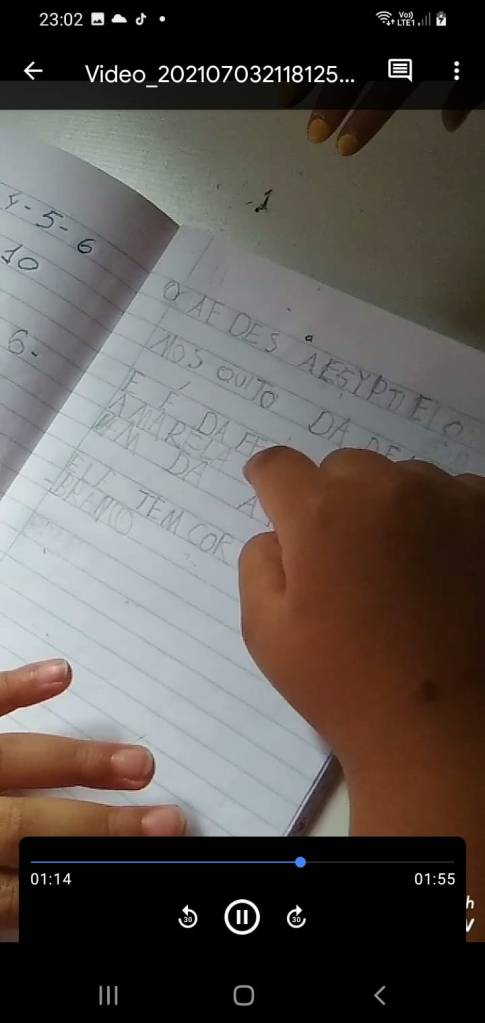 23:02
Vo))
LTE1
Video_202107032118125...
4-5-6
10
6-
1
O AEDES AEGYPTI E O
MOSQUITO DA
E É DA FE
AMARELA
VEM DA
ELE TEM COR
BRANCO
01:14
01:55
30
30